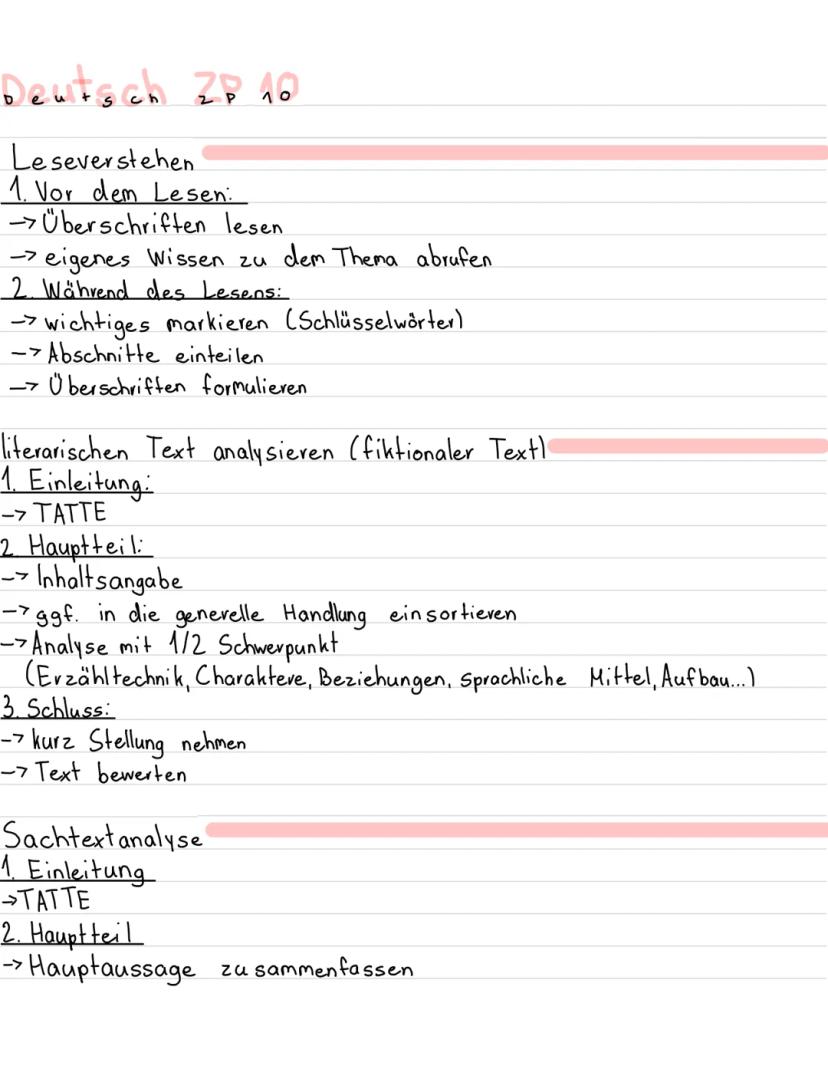 Deutsch ZP 10
Deutsch ZP 10
Leseverstehen
1. Vor dem Lesen:
-> Überschriften lesen
-> eigenes Wissen zu dem Thema abrufen
2. Während des Lesens:
-> wichtiges markieren (Schlüsselwörter)
-> Abschnitte einteilen
-> Überschriften formulieren
literarischen Text analysieren (fiktionaler Text)
1. Einleitung:
-> TATTE
2 Hauptteil:
-> Inhaltsangabe
-> ggf. in die generelle Handlung einsortieren
-> Analyse mit 1/2 Schwerpunkt
(Erzähltechnik, Charaktere, Beziehungen, sprachliche Mittel, Aufbau...)
3. Schluss:
-> kurz Stellung nehmen
-> Text bewerten
Sachtextanalyse
1. Einleitung
-> TATTE
2. Hauptteil
-> Hauptaussage zusammenfassen